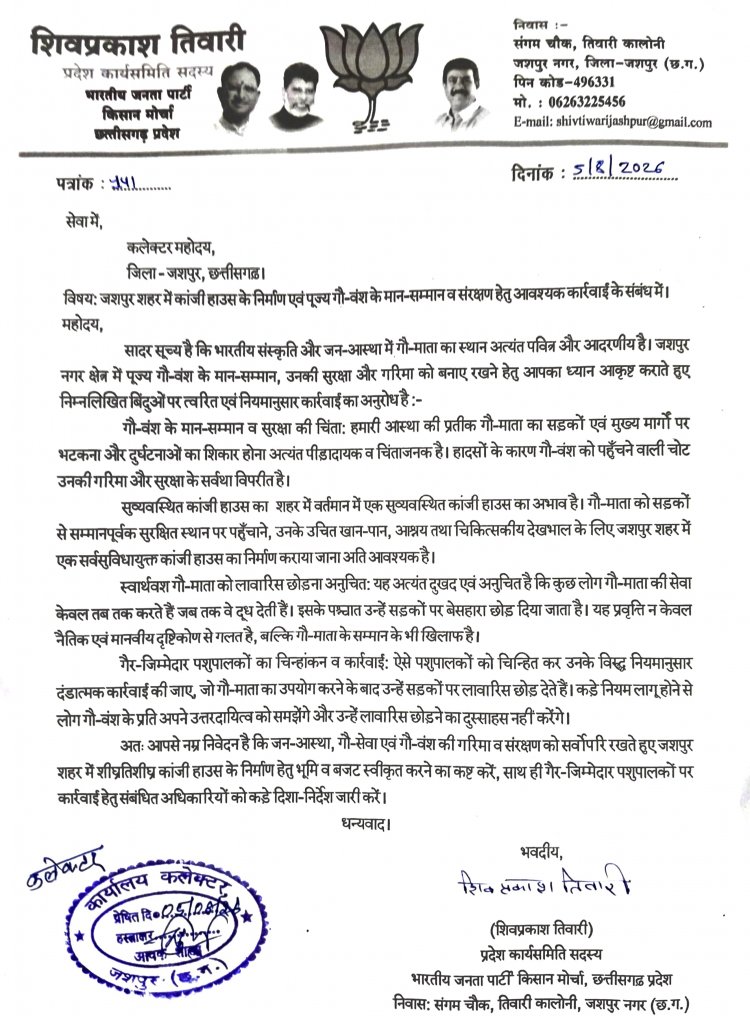 शिवप्रकाश तिवारी
प्रदेश कार्यसमिति सदस्य
भारतीय जनता पार्टी
किसान मोर्चा
छत्तीसगढ़ प्रदेश
निवास :–
संगम चौक, तिवारी कालोनी
जशपुर नगर, जिला–जशपुर (छ.ग.)
पिन कोड–496331
मो. : 06263225456
E-mail: shivtiwarijashpur@gmail.com
पत्रांक :
दिनांक : 5/8/2026
सेवा में,
कलेक्टर महोदय,
जिला - जशपुर, छत्तीसगढ़।
विषय: जशपुर शहर में कांजी हाउस के निर्माण एवं पूज्य गौ-वंश के मान-सम्मान व संरक्षण हेतु आवश्यक कार्रवाई के संबंध में।
महोदय,
सादर सूच्य है कि भारतीय संस्कृति और जन-आस्था में गौ-माता का स्थान अत्यंत पवित्र और आदरणीय है। जशपुर
नगर क्षेत्र में पूज्य गौ-वंश के मान-सम्मान, उनकी सुरक्षा और गरिमा को बनाए रखने हेतु आपका ध्यान आकृष्ट कराते हुए
निम्नलिखित बिंदुओं पर त्वरित एवं नियमानुसार कार्रवाई का अनुरोध है :-
गौ-वंश के मान-सम्मान व सुरक्षा की चिंता: हमारी आस्था की प्रतीक गौ-माता का सड़कों एवं मुख्य मार्गों पर
भटकना और दुर्घटनाओं का शिकार होना अत्यंत पीड़ादायक व चिंताजनक है। हादसों के कारण गौ-वंश को पहुँचने वाली चोट
उनकी गरिमा और सुरक्षा के सर्वथा विपरीत है।
सुव्यवस्थित कांजी हाउस का शहर में वर्तमान में एक सुव्यवस्थित कांजी हाउस का अभाव है। गौ-माता को सड़कों
से सम्मानपूर्वक सुरक्षित स्थान पर पहुँचाने, उनके उचित खान-पान, आश्रय तथा चिकित्सकीय देखभाल के लिए जशपुर शहर में
एक सर्वसुविधायुक्त कांजी हाउस का निर्माण कराया जाना अति आवश्यक है।
स्वार्थवश गौ-माता को लावारिस छोड़ना अनुचित: यह अत्यंत दुखद एवं अनुचित है कि कुछ लोग गौ-माता की सेवा
केवल तब तक करते हैं जब तक वे दूध देती हैं। इसके पश्चात उन्हें सड़कों पर बेसहारा छोड़ दिया जाता है। यह प्रवृत्ति न केवल
नैतिक एवं मानवीय दृष्टिकोण से गलत है, बल्कि गौ-माता के सम्मान के भी खिलाफ है।
गैर-जिम्मेदार पशुपालकों का चिन्हांकन व कार्रवाई: ऐसे पशुपालकों को चिन्हित कर उनके विरुद्ध नियमानुसार
दंडात्मक कार्रवाई की जाए, जो गौ-माता का उपयोग करने के बाद उन्हें सड़कों पर लावारिस छोड़ देते हैं। कड़े नियम लागू होने से
लोग गौ-वंश के प्रति अपने उत्तरदायित्व को समझेंगे और उन्हें लावारिस छोड़ने का दुस्साहस नहीं करेंगे।
अतः आपसे नम्र निवेदन है कि जन-आस्था, गौ-सेवा एवं गौ-वंश की गरिमा व संरक्षण को सर्वोपरि रखते हुए जशपुर
शहर में शीघ्रतिशीघ्र कांजी हाउस के निर्माण हेतु भूमि व बजट स्वीकृत करने का कष्ट करें, साथ ही गैर-जिम्मेदार पशुपालकों पर
कार्रवाई हेतु संबंधित अधिकारियों को कड़े दिशा-निर्देश जारी करें।
धन्यवाद।
भवदीय,
शिवप्रकाश तिवारी
(शिवप्रकाश तिवारी)
प्रदेश कार्यसमिति सदस्य
भारतीय जनता पार्टी किसान मोर्चा, छत्तीसगढ़ प्रदेश
निवास: संगम चौक, तिवारी कालोनी, जशपुर नगर (छ.ग.)
कलेक्टर
कार्यालय कलेक्टर
प्रेषित दि०
हस्ताक्षर
आवक शाखा
जशपुर (छ.ग.)